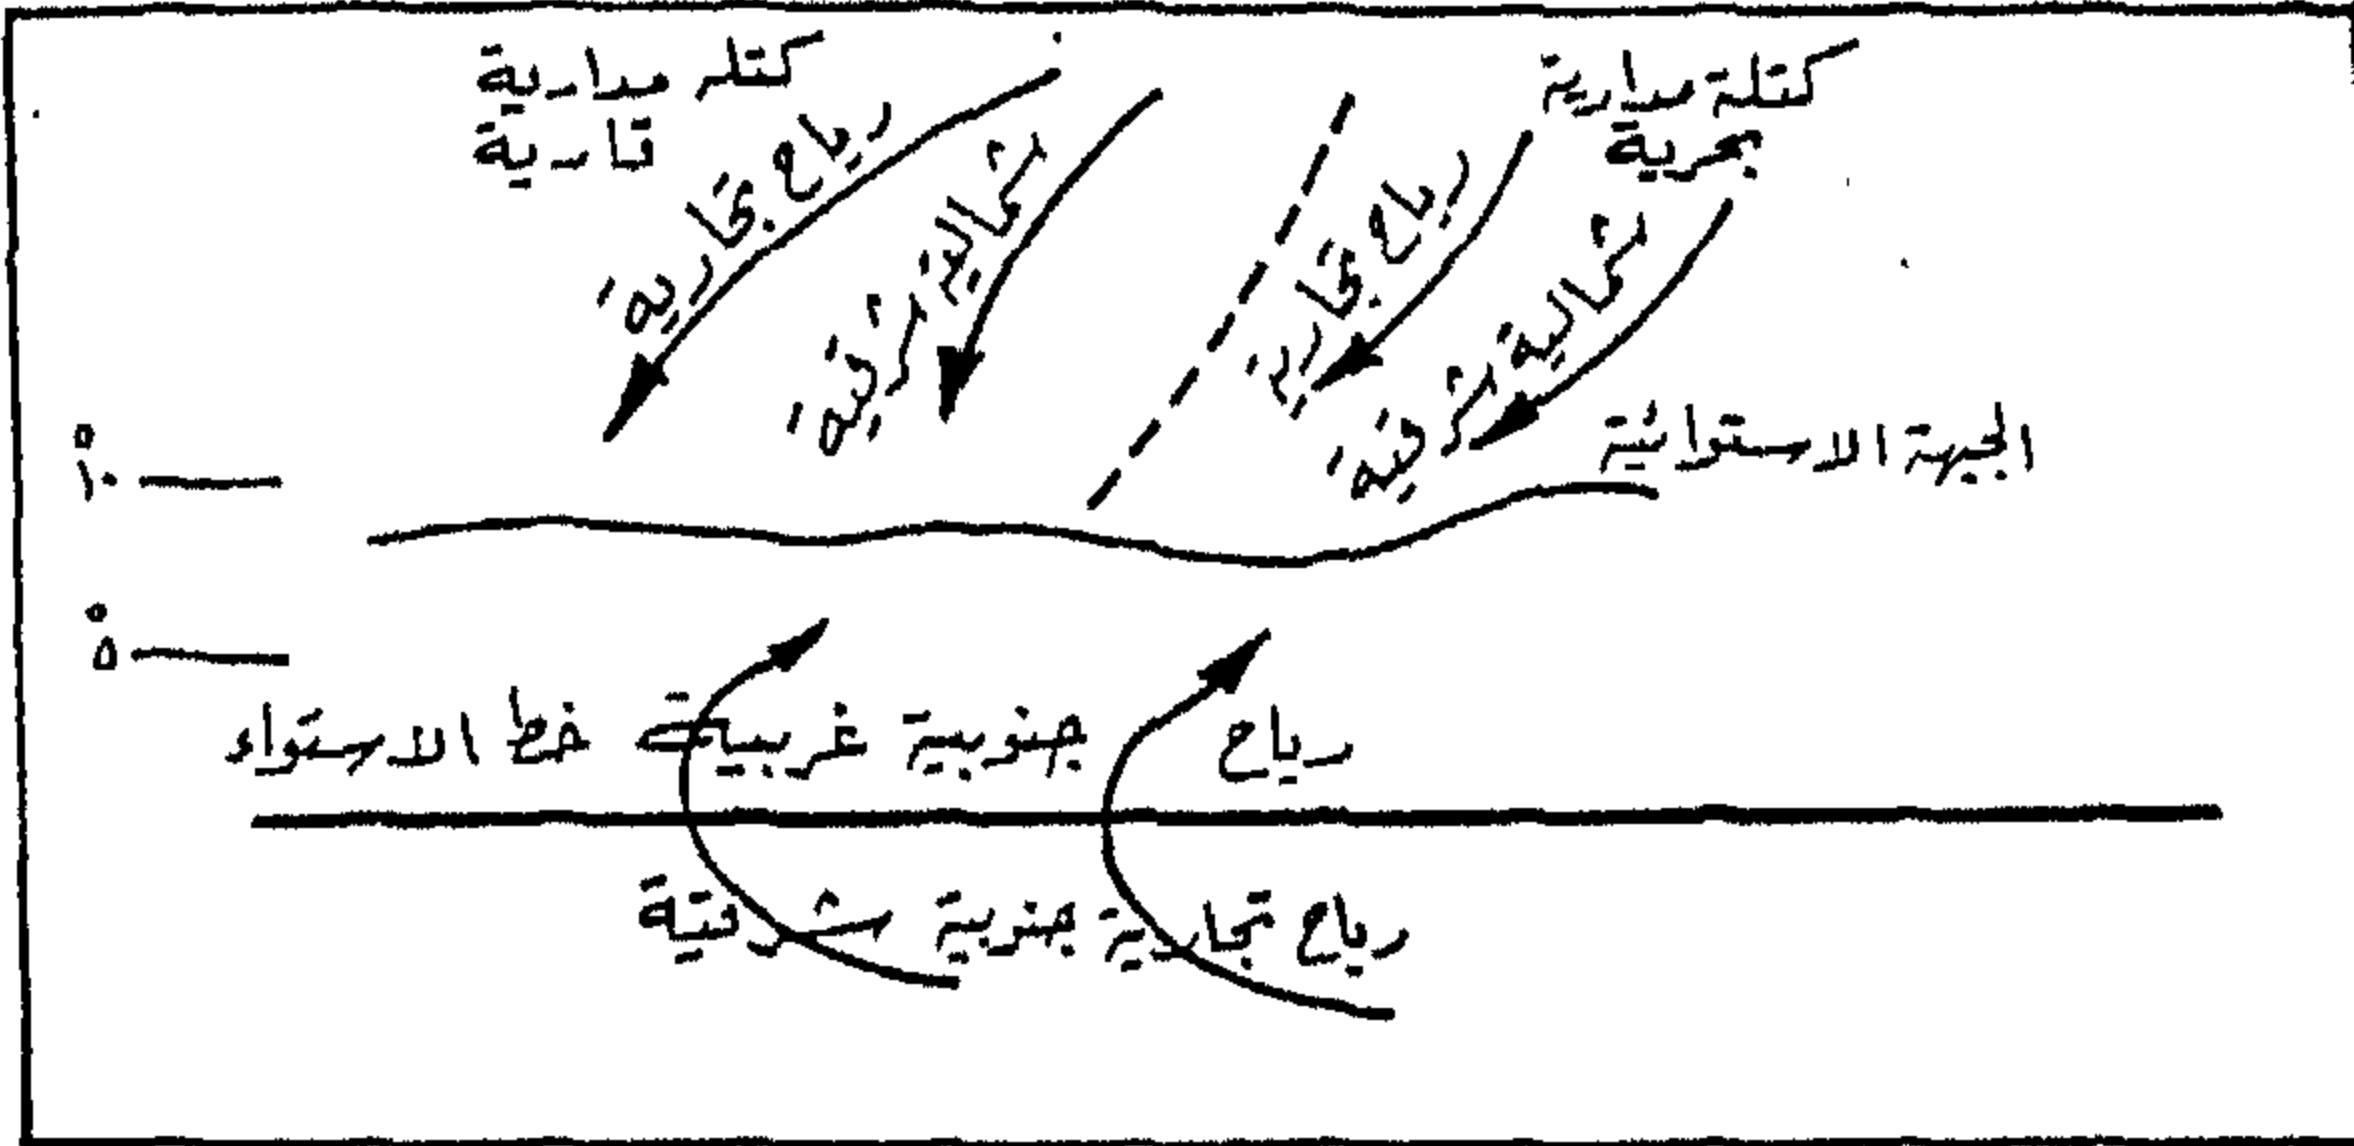 كتلة مدارية
بحرية
كتله مدارية
قارية
رياح تجارية
شمالية شرقية
رياح تجارية
شمالية شرقية
الجبهة الاستوائية
١٠°
٥°
رياح جنوبية غربية خط الاستواء
رياح تجارية جنوبية شرقية